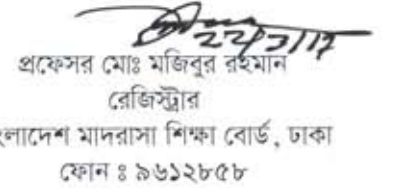 ২২/১/১৭
প্রফেসর মোঃ মজিবুর রহমান
রেজিস্ট্রার
ংলাদেশ মাদরাসা শিক্ষা বোর্ড, ঢাকা
ফোন ঃ ৯৬১২৮৫৮